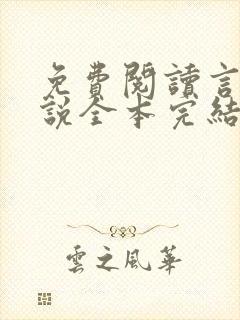 免費閱讀言
說全本完結
雲之風華